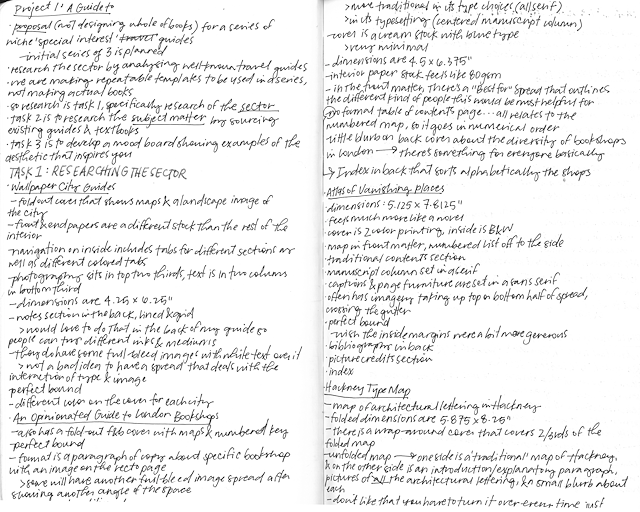 Project 1: A Guide to
· proposal (not designing whole of books) for a series of
niche 'special interest' travel guides
- initial series of 3 is planned
· research the sector by analysing well known travel guides
· we are making repeatable templates to be used in a series,
not making actual books
· so research is task 1, specifically research of the sector
· task 2 is to research the subject matter by sourcing
existing guides & textbooks
· task 3 is to develop a mood board showing examples of the
aesthetic that inspires you
TASK 1: RESEARCHING THE SECTOR
· Wallpaper City Guides
- fold out cover that shows maps & a landscape image of
the city
- front & endpapers are a different stock than the rest of the
interior
· navigation on inside includes tabs for different sections as
well as different colored tabs
- photography sits in top two thirds, text is in two columns
in bottom third
- dimensions are 4.25 x 6.25"
- notes section in the back, lined & grid
> would love to do that in the back of my guide so
people can try different inks & mediums
- they do have some full-bleed images with white text over it
> not a bad idea to have a spread that deals with the
interaction of type & image
· perfect bound
- different color on the cover for each city
· An Opinionated Guide to London Bookshops
- also has a fold-out f&b cover with maps & numbered key
- perfect bound
- format is a paragraph of copy about specific bookshop
with an image on the recto page
> some will have another full-bleed image spread after
showing another angle of the space
> more traditional in its type choices (all serif)
> in its typesetting (centered manuscript column)
- cover is a cream stock with blue type
> very minimal
- dimensions are 4.5 x 6.375"
- interior paper stock feels like 80gsm
- in the front matter, there's a "Best for" spread that outlines
the different kind of people this would be most helpful for
no formal table of contents page... all relates to the
numbered map, so it goes in numerical order
- little blurb on back cover about the diversity of bookshops
in London → there's something for everyone basically
↳ Index in back that sorts alphabetically the shops
Atlas of Vanishing Places
· dimensions: 5.125 x 7.8125"
· feels much more like a novel
· cover is 2 color printing, inside is B&W
· map in front matter, numbered list off to the side
· traditional contents section
· manuscript column set in a serif
· captions & page furniture are set in a sans serif
· often has imagery taking up top or bottom half of spread,
crossing the gutter
· perfect bound
- wish the inside margins were a bit more generous
· bibliography in back
· picture credits section
· index
· Hackney Type Map
- map of architectural lettering in Hackney
- folded dimensions are 5.875 x 8.25"
- there is a wrap-around cover that covers 2/3rds of the
folded map
- unfolded map → one side is a 'traditional' map of Hackney,
& on the other side is an introduction/explanatory paragraph,
pictures of all the architectural lettering, & a small blurb about
each
- don't like that you have to turn it over every time just